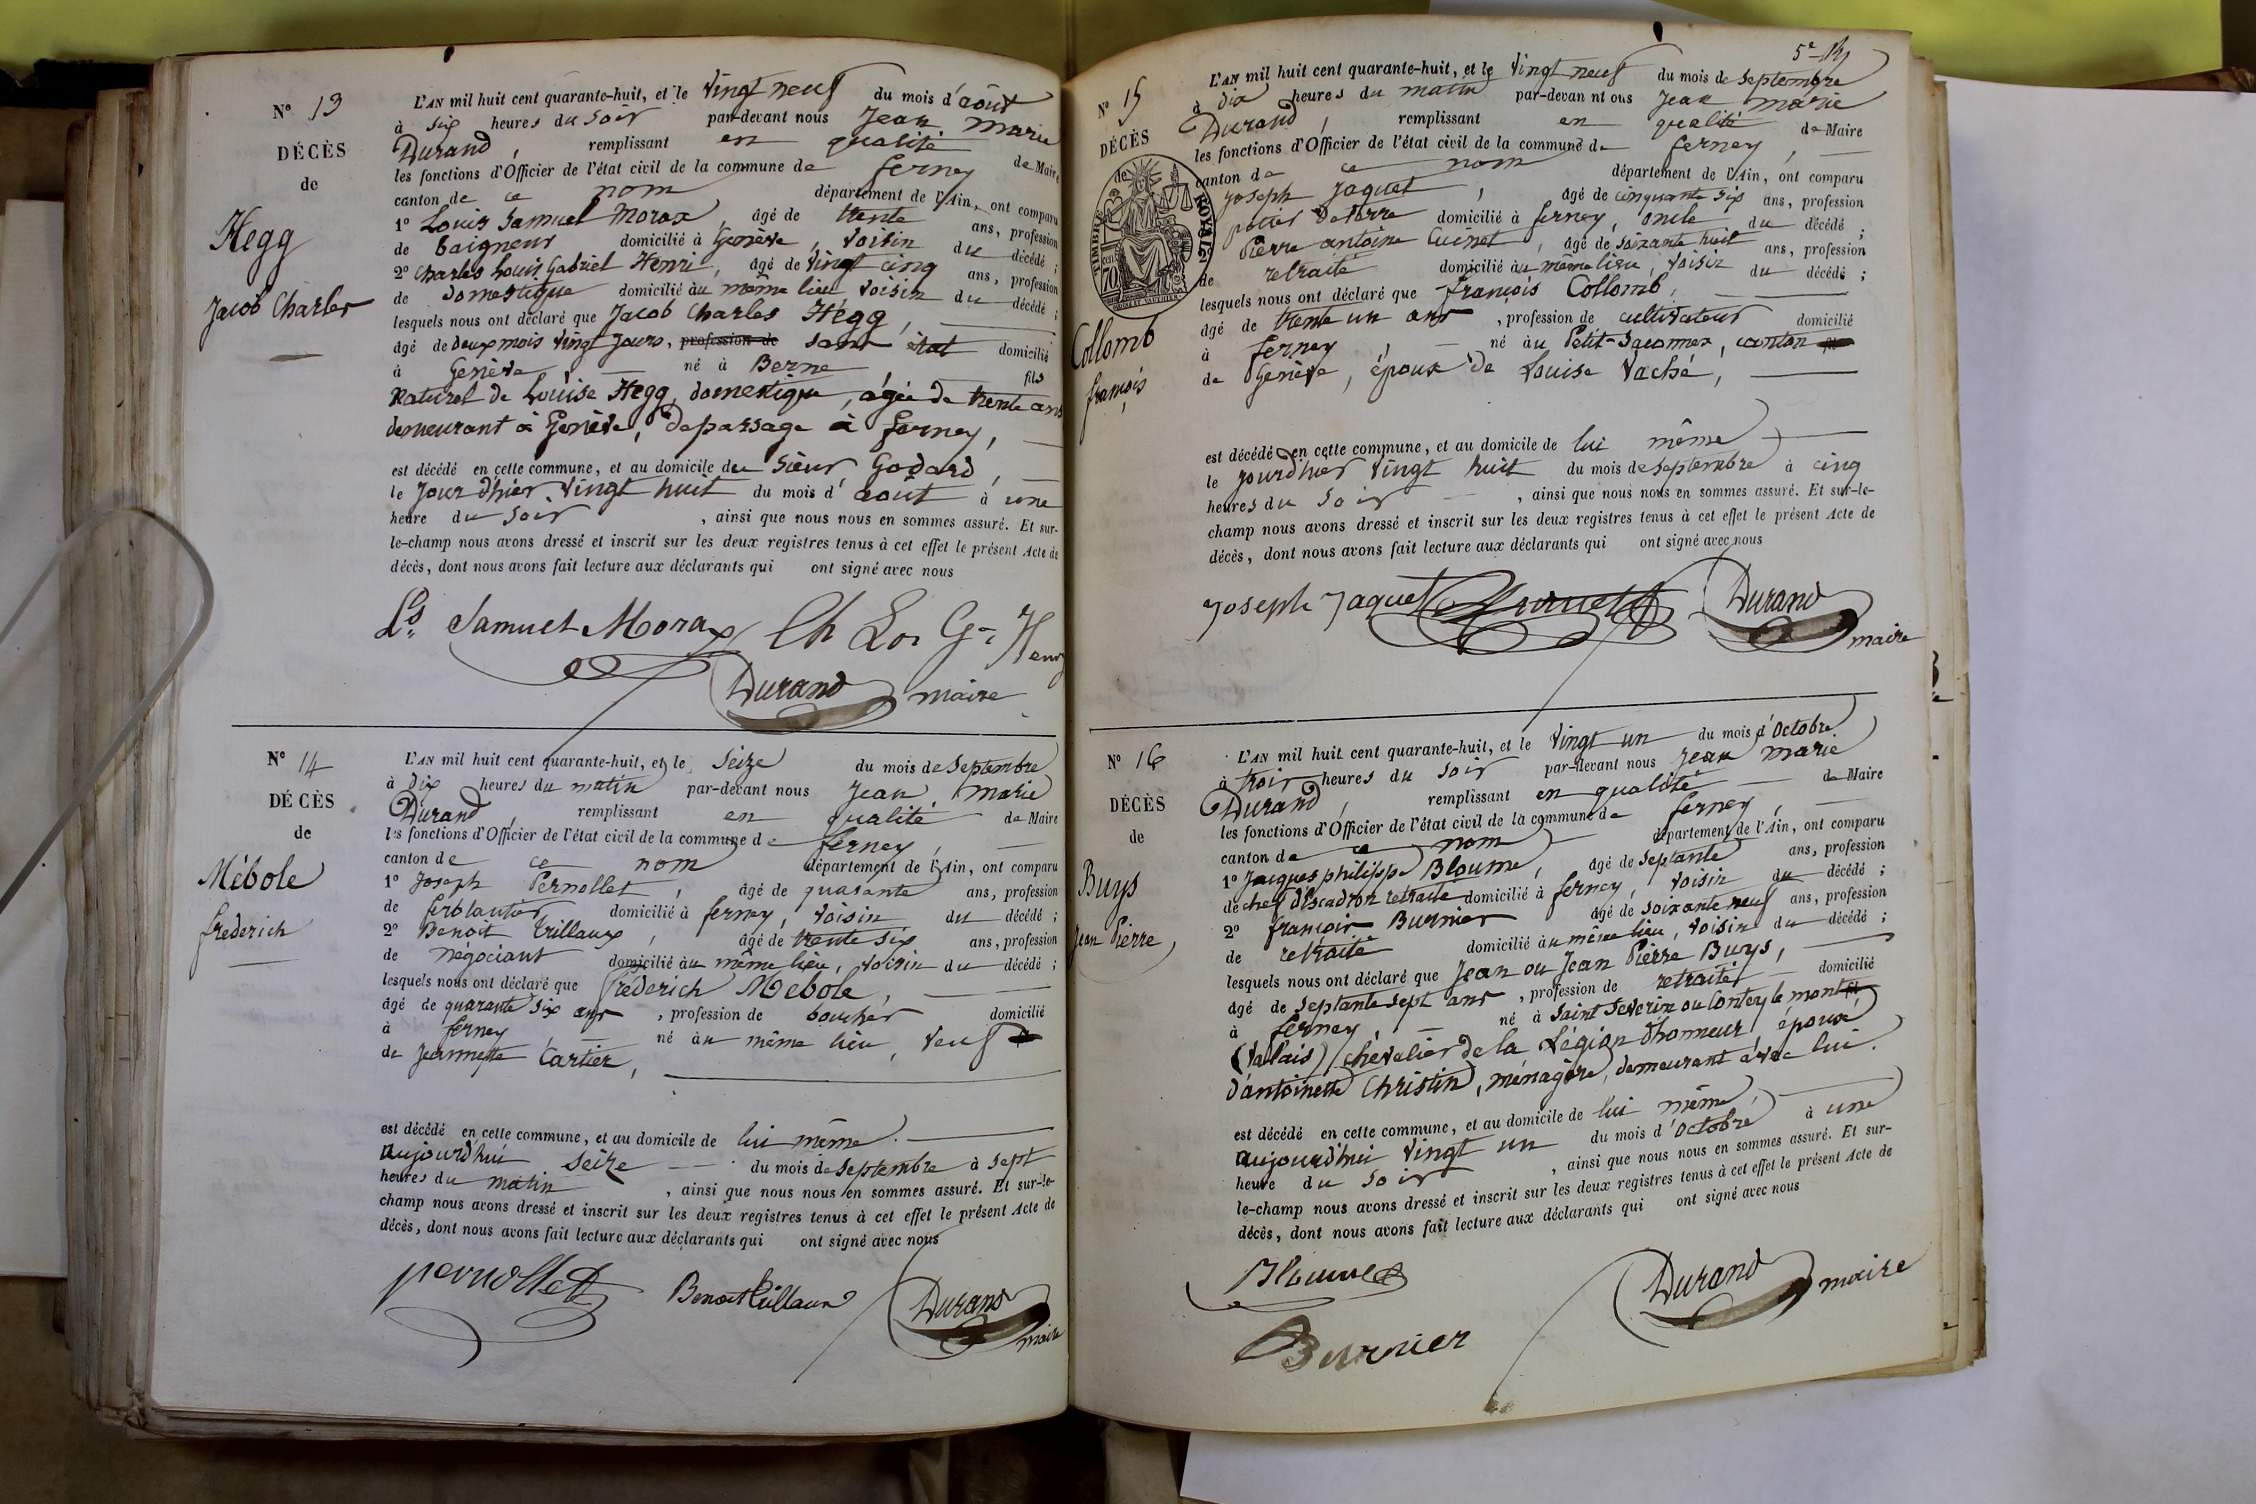 N° 13
DÉCÈS
de
Hegg
Jacob Charles
L'AN mil huit cent quarante-huit, et le vingt neuf du mois d'août
à six heures du soir par-devant nous Jean Marie
Durand, remplissant en qualité de Maire
les fonctions d'Officier de l'état civil de la commune de ferney
canton de ce nom département de l'Ain, ont comparu
1° Louis Samuel Morax, âgé de trente ans, profession
de baigneur domicilié à Genève, voisin du décédé ;
2° Charles Louis Gabriel Henri, âgé de vingt cinq ans, profession
de domestique domicilié au même lieu voisin du décédé ;
lesquels nous ont déclaré que Jacob Charles Hegg,
âgé de deux mois vingt jours, profession de sans état domicilié
à Genève, né à Berne, fils
naturel de Louise Hegg, domestique, âgée de trente ans
demeurant à Genève, de passage à ferney,
est décédé en cette commune, et au domicile du sieur Godard,
le jour d'hier vingt huit du mois d'août à une
heure du soir, ainsi que nous nous en sommes assuré. Et sur-
le-champ nous avons dressé et inscrit sur les deux registres tenus à cet effet le présent Acte de
décès, dont nous avons fait lecture aux déclarants qui ont signé avec nous
Ls Samuel Morax Ch Los Gel Henry
Durand maire
N° 14
DÉCÈS
de
Mébole
frederich
L'AN mil huit cent quarante-huit, et le seize du mois de septembre
à dix heures du matin par-devant nous Jean Marie
Durand, remplissant en qualité de Maire
les fonctions d'Officier de l'état civil de la commune de ferney,
canton de ce nom département de l'Ain, ont comparu
1° Joseph Pernollet, âgé de quarante ans, profession
de ferblantier domicilié à ferney, voisin du décédé ;
2° Benoit Trillaux, âgé de trente six ans, profession
de négociant domicilié au même lieu, voisin du décédé ;
lesquels nous ont déclaré que frederich Mebole,
âgé de quarante six ans, profession de boucher domicilié
à ferney, né au même lieu, veuf
de Jeannette Cartier,
est décédé en cette commune, et au domicile de lui même.
aujourd'hui seize du mois de septembre à sept
heures du matin, ainsi que nous nous en sommes assuré. Et sur-le-
champ nous avons dressé et inscrit sur les deux registres tenus à cet effet le présent Acte de
décès, dont nous avons fait lecture aux déclarants qui ont signé avec nous
pernollet Benoit Trillaux Durand
maire
5e
N° 15
DÉCÈS
de
TIMBRE ROYAL
70
Collomb
françois
L'AN mil huit cent quarante-huit, et le vingt neuf du mois de septembre
à dix heures du matin par-devan nt ous Jean Marie
Durand, remplissant en qualité de Maire
les fonctions d'Officier de l'état civil de la commune de ferney,
canton de ce nom département de l'Ain, ont comparu
joseph jaquet, âgé de cinquante six ans, profession
potier de terre domicilié à ferney, oncle du décédé ;
Pierre antoine Cuinet, âgé de soixante huit ans, profession
de retraité domicilié au même lieu, voisin du décédé ;
lesquels nous ont déclaré que françois Collomb,
âgé de trente un ans, profession de cultivateur domicilié
à ferney, né au Petit-Saconnex, canton
de Genève, époux de Louise Vaché,
est décédé en cette commune, et au domicile de lui même
le jour d'hier vingt huit du mois de septembre à cinq
heures du soir, ainsi que nous nous en sommes assuré. Et sur-le-
champ nous avons dressé et inscrit sur les deux registres tenus à cet effet le présent Acte de
décès, dont nous avons fait lecture aux déclarants qui ont signé avec nous
joseph jaquet Durand
maire
N° 16
DÉCÈS
de
Buys
Jean Pierre
L'AN mil huit cent quarante-huit, et le vingt un du mois d'octobre
à trois heures du soir par-devant nous Jean Marie
Durand, remplissant en qualité de Maire
les fonctions d'Officier de l'état civil de la commune de ferney,
canton de ce nom département de l'Ain, ont comparu
1° Jacques philippe Bloume, âgé de septante ans, profession
de chef d'Escadron retraité domicilié à ferney, voisin du décédé ;
2° françois Burnier âgé de soixante neuf ans, profession
de retraité domicilié au même lieu, voisin du décédé ;
lesquels nous ont déclaré que Jean ou Jean Pierre Buys,
âgé de septante sept ans, profession de retraité domicilié
à ferney, né à Saint Severin ou Contey le mont
(Valais) chevalier de la Légion d'honneur, époux
d'antoinette Christin, ménagère, demeurant avec lui.
est décédé en cette commune, et au domicile de lui même
aujourd'hui vingt un du mois d'octobre à une
heure du soir, ainsi que nous nous en sommes assuré. Et sur-
le-champ nous avons dressé et inscrit sur les deux registres tenus à cet effet le présent Acte de
décès, dont nous avons fait lecture aux déclarants qui ont signé avec nous
Bloume Durand maire
Burnier